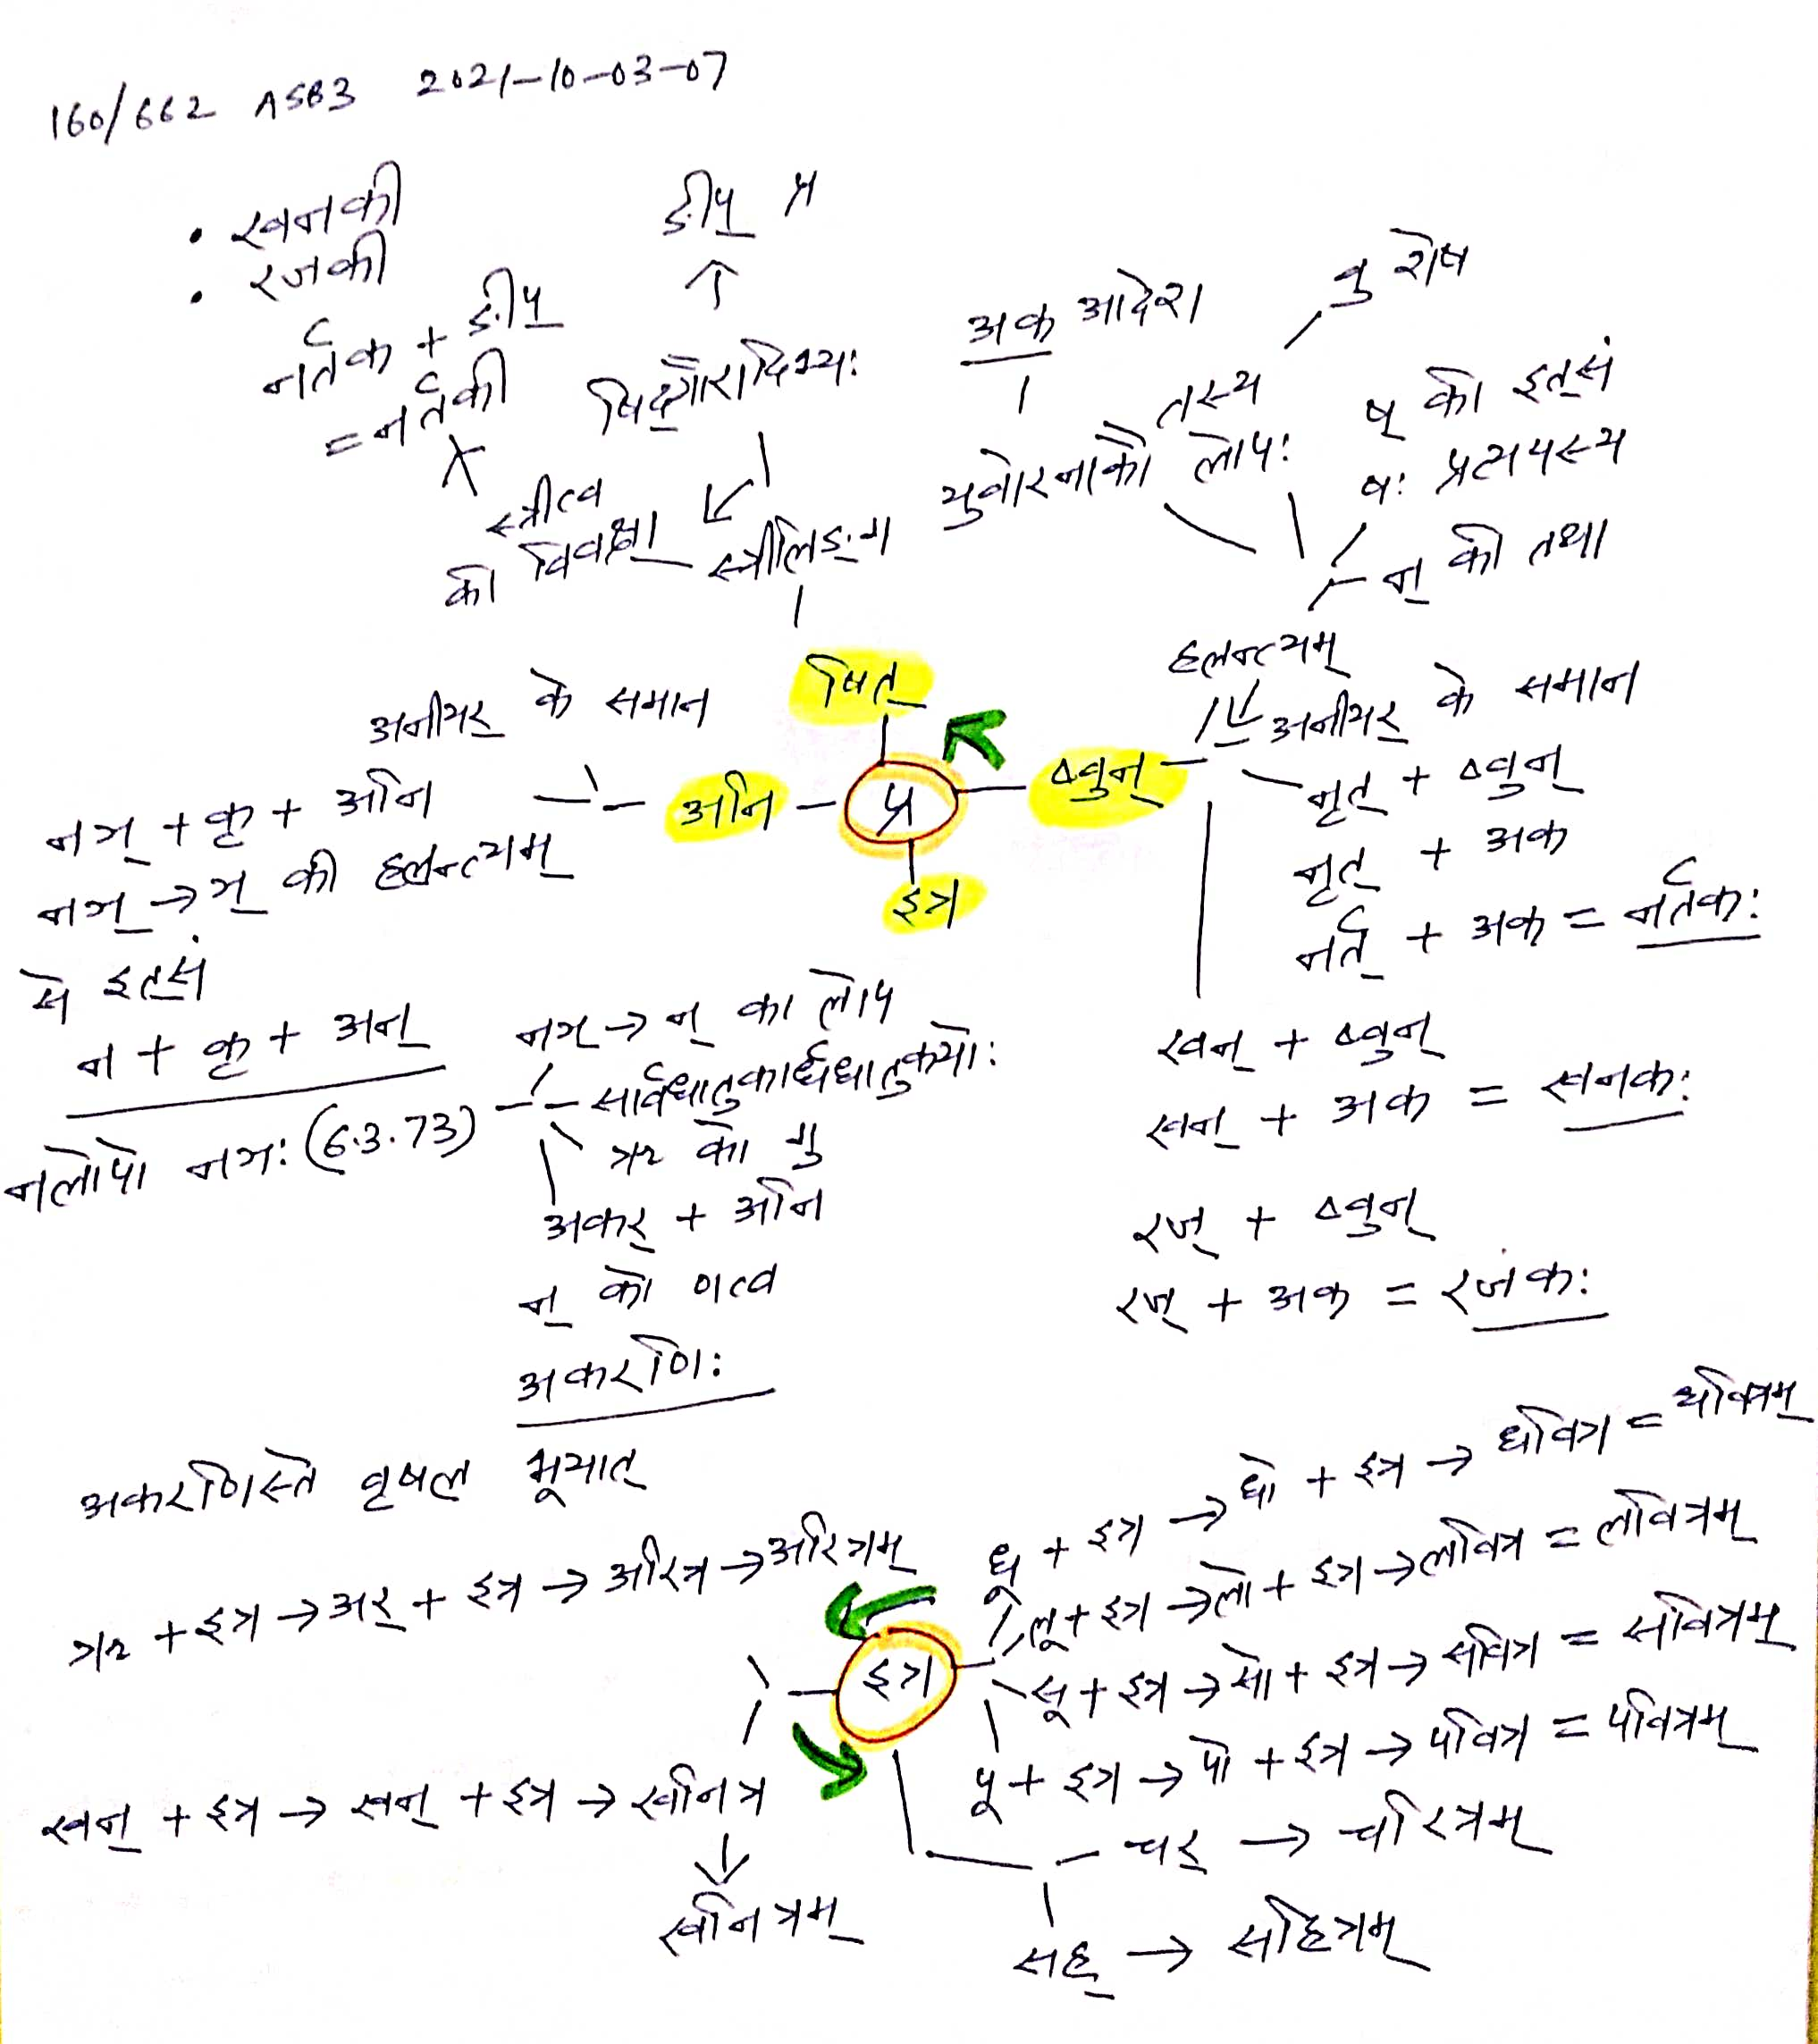 160/662 ASB3 2021-10-03-07
• खनकी
• रजकी
नर्तक + ङीप्
= नर्तकी
ङीप् प्र
षिद्गौरादिभ्यः
स्त्रीत्व
की विवक्षा
स्त्रीलिङ्ग
अक आदेश
युवोरनाकौ
तस्य
लोपः
वु शेष
ष् की इत्सं
षः प्रत्ययस्य
न् की तथा
हलन्त्यम्
षित्
प्र
अनि
ष्वुन्
इत्र
अनीयर् के समान
नृत् + ष्वुन्
नृत् + अक
नर्त् + अक = नर्तकः
खन् + ष्वुन्
खन् + अक = खनकः
रज् + ष्वुन्
रज् + अक = रजकः
अनीयर् के समान
नञ् + कृ + अनि
नञ् → ञ् की हलन्त्यम्
से इत्सं
न + कृ + अन्
नलोपो नञः (6.3.73)
नञ् → न् का लोप
सार्वधातुकार्धधातुकयोः
ऋ को गु
अकर् + अनि
न् को णत्व
अकरणिः
अकरणिस्ते वृषल भूयात्
इत्र
धू + इत्र → धो + इत्र → धवित्र = धवित्रम्
लू + इत्र → लो + इत्र → लवित्र = लवित्रम्
सू + इत्र → सो + इत्र → सवित्र = सवित्रम्
पू + इत्र → पो + इत्र → पवित्र = पवित्रम्
चर् → चरित्रम्
सह् → सहित्रम्
ऋ + इत्र → अर् + इत्र → अरित्र → अरित्रम्
खन् + इत्र → खन् + इत्र → खनित्र
↓
खनित्रम्